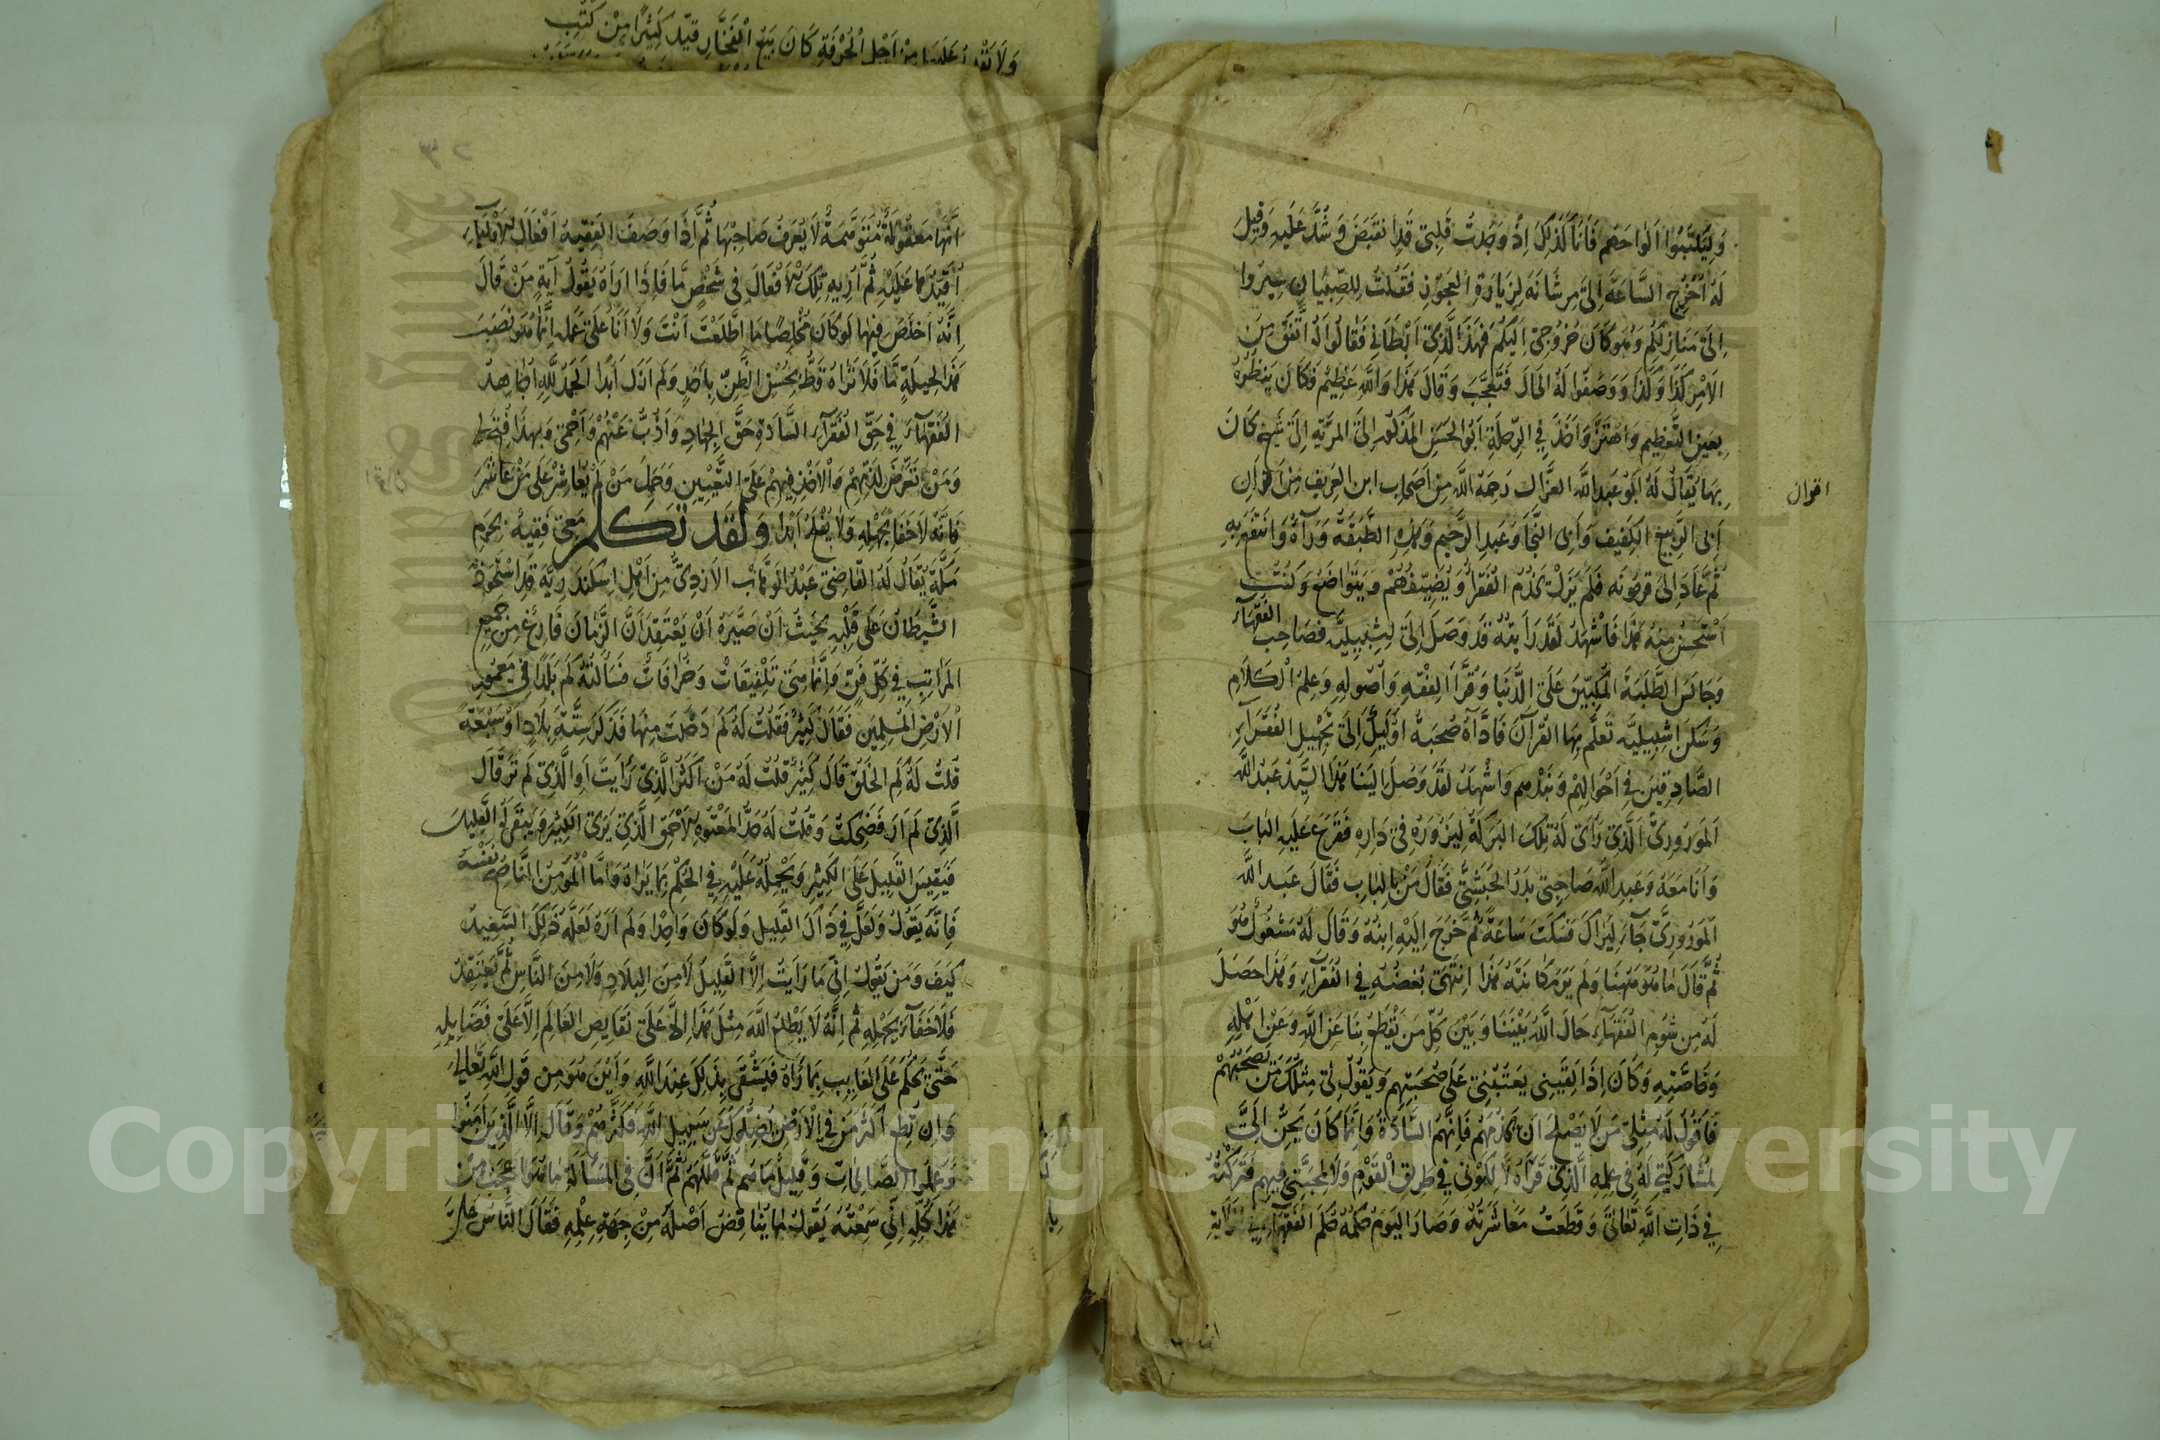 وَلِيَكْتُبُوا اَلْوَاحَهُم فَاَنَا كَذٰلِكَ اِذْ وَجَدتُ قَلبِى قَدِ انقَبَضَ وَشُدَّ عَلَيهِ وَقِيلَ
لَهُ اُخْرُج السَّاعَةَ اِلىَ مرشَانَة لِزِيَارَةِ الْعَجُوْزِ فَقُلتُ لِلصِّبيَانِ سِيرُوا
اِلىَ مَنَازِلِكُم وَهُوَ كَانَ خُرُوجِى اِلَيكُم فَهٰذَا الَّذِى اَبْطَانِى فَقَالُوا لَهُ اتَّفَقَ مِنَ
الاَمْرِ كَذَا وَكَذَا وَوَصَفُوا لَهُ الحَالَ فَتَعَجَّبَ وَقَالَ هَذَا وَاللّٰهِ عَظِيْم فَكَانَ يَنظُرُهُ
بِعَينِ التَّعظِيم وَاهتَزَّ وَاَخَذَ فِى الرِّحلَةِ اَبُو الحَسَنِ المَذْكُور اِلىَ المَرِّيَّةِ اِلىَ شَيخٍ كَانَ
بِهَا يُقَالُ لَهُ اَبُو عَبدِ اللّٰهِ الغزَّال رَحِمَهُ اللّٰهُ مِن اَصحَابِ ابن العَرِيف مِن اَقرَانِ
اقران
اَبِى الرَّبِيعِ الكَفِيف وَاَبِى النَّجَا وَعَبدِ الرَّحِيم وَهٰذِهِ الطَّبَقَةُ وَرَآهُ وَانتَفَعَ بِهِ
ثُمَّ عَادَ اِلىَ قرمونَه فَلَمْ يَزَلْ يَخدُمُ الفُقَرَآءَ وَيُضَيِّفُهُمْ وَيَتَوَاضَعُ وَكُنتُ
اَسْتَحسِنُ مِنهُ هٰذَا فَاَشْهَدُ لَقَدْ رَاَيتُهُ قَد وَصَلَ اِلىَ اِشبِيليَّه فَصَاحِبَ الفُقَهَآءَ
وَجَالَسَ الطَّلَبَةَ المُكِبِّينَ عَلىَ الدُّنيَا وَقَرَاَ الفِقْهَ وَاُصُولَهِ وَعِلمَ الْكَلاَمِ
وَسَكَنَ اشبِيليَّه تُعَلِّم بِهَا القُرآنَ فَادَّاهُ صُحبَةُ اُولٓئِكَ اِلىَ تَجْهِيلِ الفُقَرَآءِ
الصَّادِقِينَ فِى اَحْوَالِهِمْ وَاَشْهَدُ لَقَد وَصَلَ اِلَينَا هٰذَا السَّيِّدُ عَبدُ اللّٰهِ
المَورُورِىُّ الَّذِى رَاَى لَهُ تِلكَ البَرَكَةَ لِيَزُورَهُ فِى دَارِهِ فَقَرَعَ عَلَيهِ البَابَ
وَاَنَا مَعَهُ وَعَبدُ اللّٰهِ صَاحِبِى بَدرُ الحَبَشِىُّ فَقَالَ مَنْ بِالبَابِ فَقَالَ عَبدُ اللّٰهِ
المَورُورِىُّ جَآءَ لِيَرَاكَ فَسَكَتَ سَاعَةً ثُمَّ خَرَجَ اِلَيْهِ ابنُهُ وَقَالَ لَهُ مَشْغُولٌ هُوَ
ثُمَّ قَالَ مَا هُوَ هٰهُنَا وَلَم يَرَهُ هٰذَا انتَهَى بُغضُهُ فِى الفُقَرَآءِ وَهٰذَا حَصَلَ
لَهُ مِن شُومِ الفُقَهَآءِ حَالَ اللّٰهُ بَيْنَنَا وَبَيْنَ كُلِّ مَن يَقْطَعُ بِنَا عَنِ اللّٰهِ وَعَنْ اَهْلِهِ
وَخَاصَّتِهِ وَكَانَ اِذَا لَقِيَنِى يَعتِبُنِى عَلىَ صُحبَتِهِم وَيَقُولُ لِى مِثلُكَ مَن يَصحَبُهُمْ
فَاَقُولُ لَهُ مِثلِى مَن لاَ يَصْلحُ اَن يَخدُمَهُم فَاِنَّهُمُ السَّادَةُ وَاِنَّمَا كَانَ يَحِنُّ اِلَىَّ
لِمُشَارَكَتِى لَهُ فِى عِلمِهِ الَّذِى قَرَاَهُ لاَ لِكَونِى فِى طَرِيقِ القَوْمِ وَلاَ لِمَحَبَّتِى فِيهِم فَتَرَكتُهُ
فِى ذَاتِ اللّٰهِ تَعَالىَ وَقَطَعتُ مَعَاشَرَتَهُ وَصَارَ اليَومَ حُكمُهُ حُكمَ الفُقَهَآءِ فِى
اَنَّهَا مَعقُولَةٌ مُتَوَهَّمَةٌ لاَ يُعرَفُ صَاحِبُهَا ثُمَّ اِذَا وَصَفَ الفَقِيهُ اَفْعَالَ الاَوْلِيَآءِ
اُقَيِّدُهَا عَلَيْهِ ثُمَّ اُرِيهِ تِلكَ الاَفْعَالَ فِى شَخصٍ مَّا فَاِذَا اَرَاهُ يَقُولُ اَيَّةُ مَنْ قَالَ
اِنَّهُ اَخلَصَ فِيهَا لَو كَانَ مُخلِصًا مَا اطَّلَعْتَ اَنْتَ وَلاَ اَنَا عَلىَ عَمَلِهِ اِنَّمَا هُوَ نَصَبَ
هٰذَا لِحِيلَةٍ مَّا فَلاَ تَرَاهُ قَطُّ يُحْسِنُ الظَّنَّ بِاَحَدٍ وَلَم اَزَل اَبَدًا الحَمدُ لِلّٰهِ اُجَاهِدُ
الفُقَهَآءَ فِى حَقِّ الفُقَرَآءِ السَّادَةِ حَقَّ الجِهَادِ وَاَذُبُّ عَنْهُمْ وَاَحْمِى وَبِهٰذَا فُتِحَ لىِ
وَمَنْ تَعَرَّضَ لِذَمِّهِمْ وَالاَخْذِ فِيهِمْ عَلىَ التَّعْيِينِ وَحَمَلَ مَنْ لَمْ يُعَاشِرْ عَلىَ مَنْ عَاشَرَ
فَاِنَّهُ لاَ خَفَآءَ بِجَهْلِهِ وَلاَ يُفْلِحُ اَبَدًا وَلَقَد تَكَلَّمَ مَعِى فَقِيهٌ بِحَرَمِ
مَكَّةَ يُقَالُ لَهُ القَاضِى عَبْدُ الوَهَّابِ الاَزدِىُّ مِن اَهْلِ اِسكَندَرِيَّةَ قَدِ اسْتَحوَذَ
الشَّيطَانُ عَلىَ قَلْبِهِ بِحَيثُ اَنْ صَيَّرَهُ اَنْ يَعْتَقِدَ اَنَّ الزَّمَانَ فَارِغٌ مِن جَمِيعِ
المَرَاتِبِ فِى كُلِّ فَنٍّ وَاِنَّمَا هِىَ تَلفِيقَاتٌ وَخُرَافَاتٌ فَسَاَلتُهُ كَم بَلَدًا فِى مَعمُورِ
الاَرْضِ لِلْمُسلِمِينَ فَقَالَ كَثِيرٌ فَقُلتُ لَهُ كَم دَخَلتَ مِنهَا فَذَكَرَ سِتَّةَ بِلاَدٍ اَوْ سَبْعَةً
قُلتُ لَهُ كَمِ الخَلقُ قَالَ كَثِيرٌ قُلتُ لَهُ مَنْ اَكثَرُ الَّذِى رَاَيتَ اَوِ الَّذِى لَم تَرَ قَالَ
الَّذِى لَم اَرَ فَضَحِكتُ وَقُلتُ لَهُ حَدُّ المَعْتُوهِ الاَحْمَقِ الَّذِى يَرَى الكَثِيرَ وَيَبقَى لَهُ القَلِيلُ
فَيَقِيسُ القَلِيلَ عَلىَ الكَثِيرِ وَيَحْمِلُهُ عَلَيْهِ فِى الحُكْمِ بِمَا يَرَاهُ وَاَمَّا المُؤمِنُ النَّاصِحُ نَفْسَهُ
فَاِنَّهُ يَقُولُ وَلَعَلَّ فِى ذٰلِكَ القَلِيلِ وَلَو كَانَ وَاحِدًا وَلَم اَرَهُ لَعَلَّهُ ذٰلِكَ السَّعِيدُ
كَيفَ وَمَن يَقُولُ اِنِّى مَا رَاَيتُ اِلاَّ القَلِيلَ لاَ مِنَ البِلاَدِ وَلاَ مِنَ النَّاسِ ثُمَّ يَعتَقِدُ
فَلاَ خَفَآءَ بِجَهْلِهِ ثُمَّ اِنَّهُ لاَ يُطْلِعُ اللّٰهُ مِثْلَ هٰذَا اِلاَّ عَلىَ نَقَايِصِ العَالَمِ لاَ عَلىَ فَضَائِلِهِ
حَتَّى يَحْكُمَ عَلىَ الغَايِبِ بِمَا رَآهُ فَيَشْقَى بِذٰلِكَ عِندَ اللّٰهِ وَاَيْنَ هُوَ مِن قَولِ اللّٰهِ تَعَالىَ
وَاِن تُطِع اَكثَرَ مَن فِى الاَرضِ يُضِلُّوكَ عَن سَبِيلِ اللّٰهِ فَكَثَّرَهُمْ وَقَالَ اِلاَّ الَّذِينَ آمَنُوا
وَعَمِلُوا الصَّالِحَاتِ وَقَلِيلٌ مَا هُم ثُمَّ قَلَّلَهُمْ ثُمَّ اِنَّ فِى المَسْاَلَةِ مَا هُوَ اَعجَبُ مِنْ
هٰذَا كُلِّهِ اِنِّى سَمِعْتُهُ يَقُولُ مَا يُنَاقِضُ اَصْلَهُ مِنْ جِهَةِ عِلْمِهِ فَقَالَ النَّاسُ